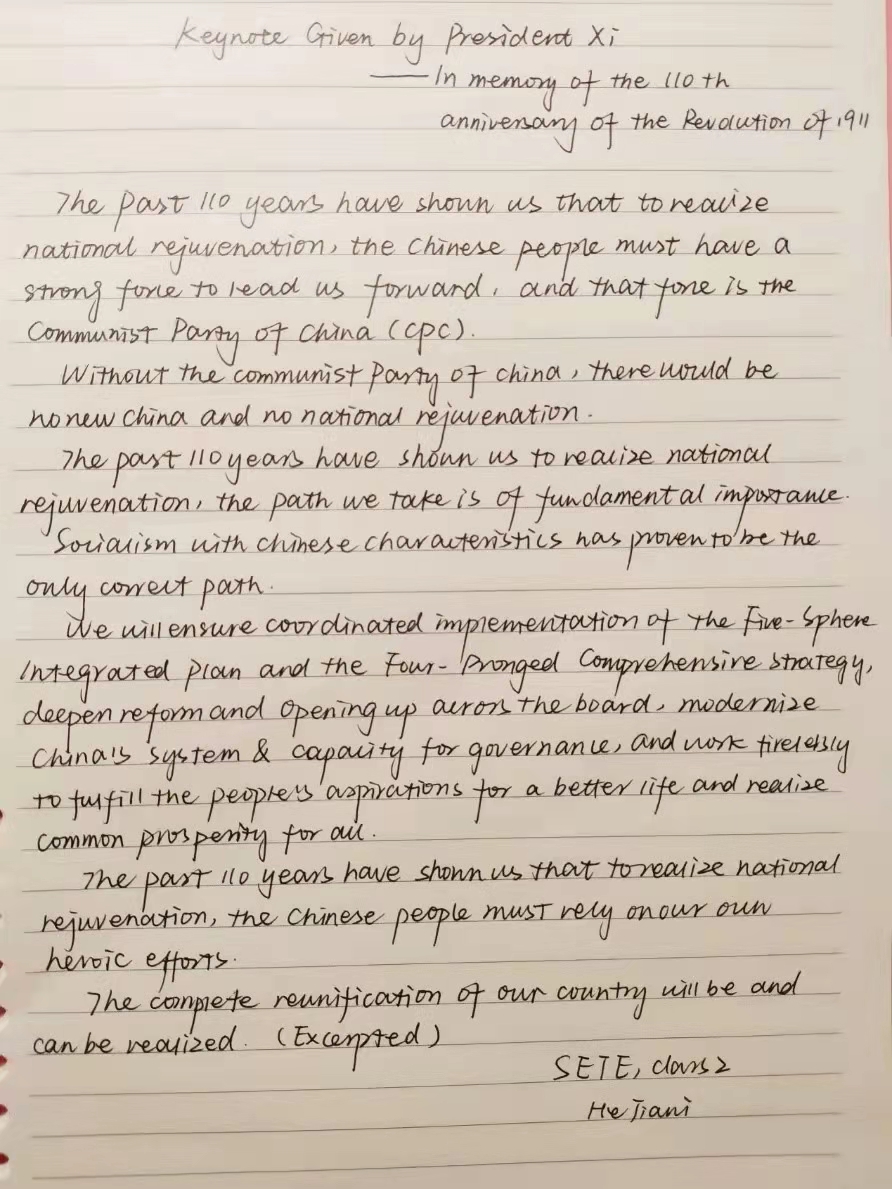 Keynote Given by President Xi
——In memory of the 110 th
anniversary of the Revolution of 1911
The past 110 years have shown us that to realize
national rejuvenation, the Chinese people must have a
strong force to lead us forward, and that force is the
Communist Party of China (CPC).
Without the communist Party of china, there would be
no new China and no national rejuvenation.
The past 110 years have shown us to realize national
rejuvenation, the path we take is of fundamental importance.
Socialism with chinese characteristics has proven to be the
only correct path.
We will ensure coordinated implementation of the Five-Sphere
Integrated plan and the Four-Pronged Comprehensive strategy,
deepen reform and opening up across the board, modernize
China's system & capacity for governance, and work tirelessly
to fulfill the people's aspirations for a better life and realize
common prosperity for all.
The past 110 years have shown us that to realize national
rejuvenation, the Chinese people must rely on our own
heroic efforts.
The complete reunification of our country will be and
can be realized. (Excerpted)
SETE, class 2
He Jiani